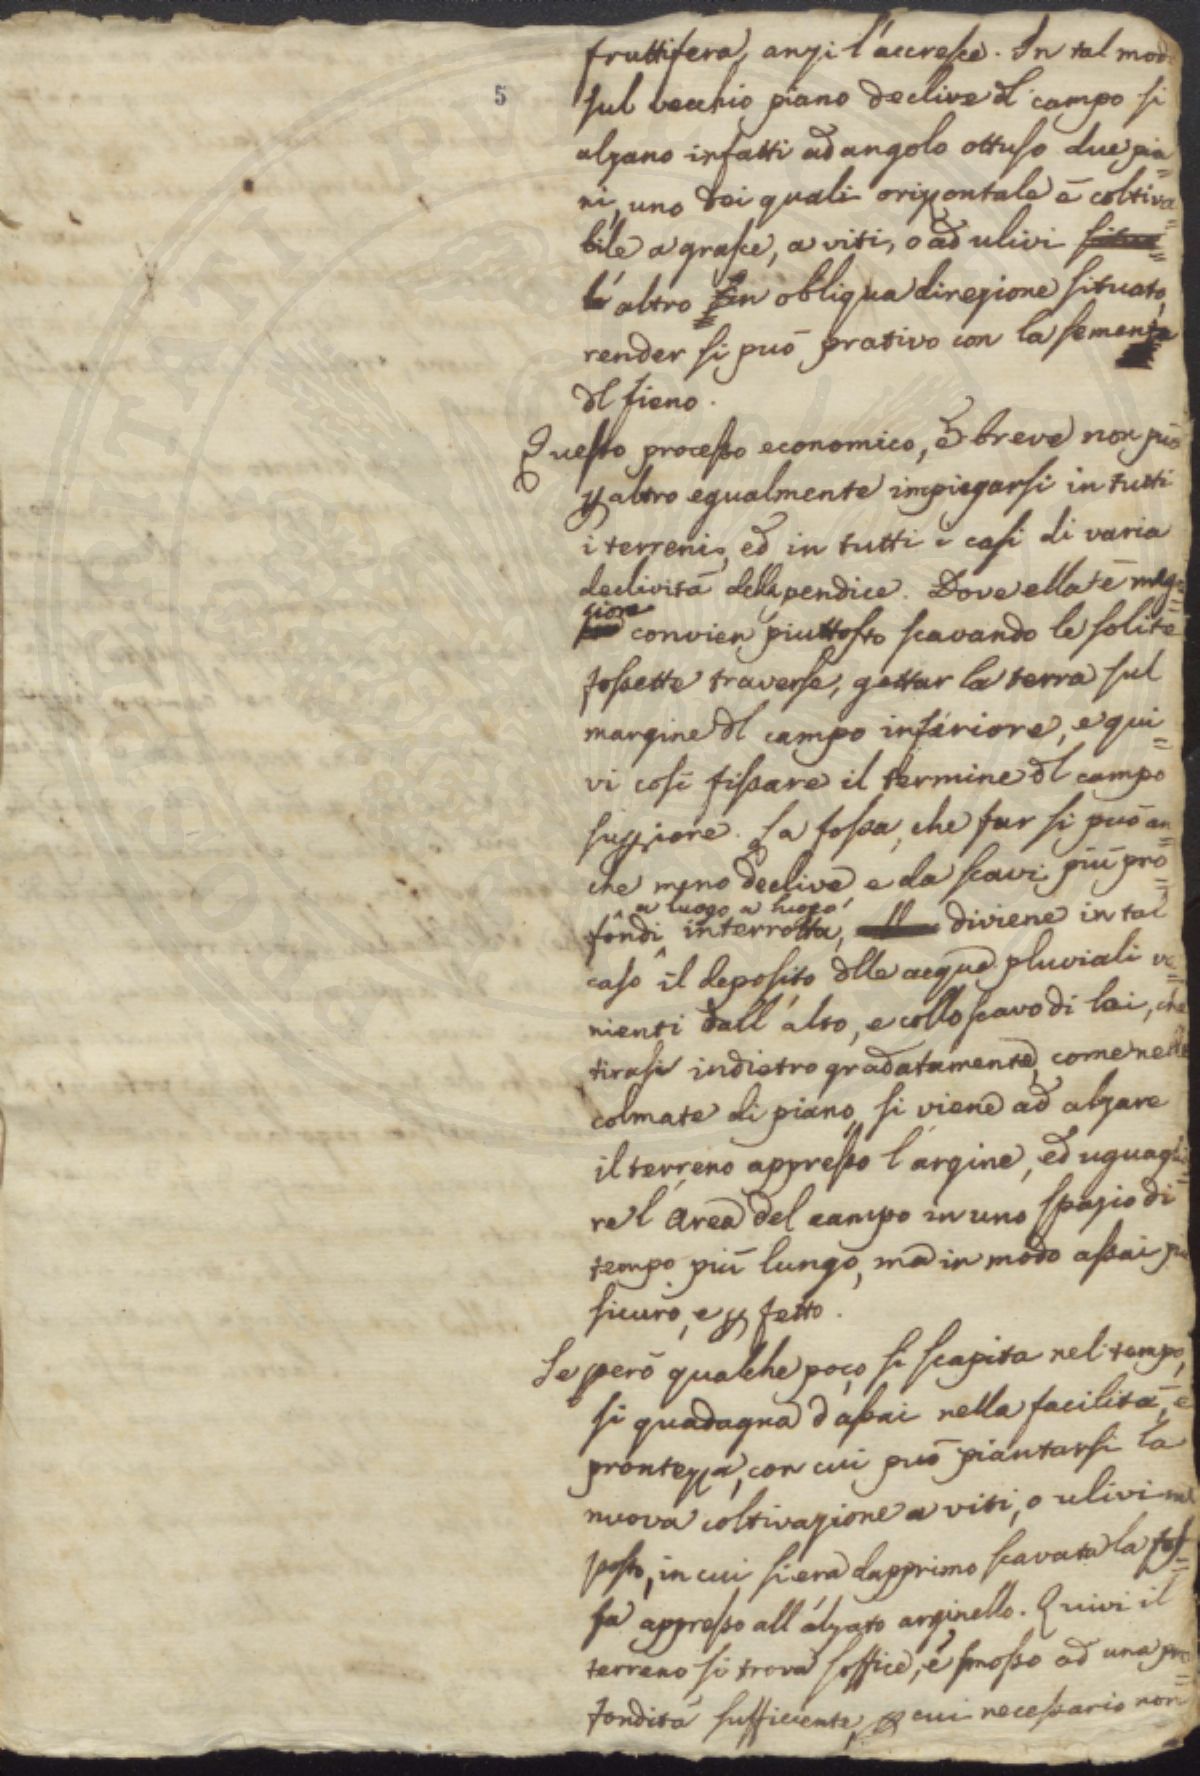 5
fruttifera, anzi l'accresce. In tal modo
sul vecchio piano declive dl campo si
alzano infatti ad angolo ottuso due pia=
ni, uno dei quali orizontale è coltiva=
bile a grasce, a viti, o ad ulivi
l'altro in obliqua direzione situato,
render si può prativo con la sementa
dl fieno.
Questo processo economico, e breve non può
p altro egualmente impiegarsi in tutti
i terreni, ed in tutti i casi di varia
declività della pendice. Dove ella è mag=
giore
convien piuttosto scavando le solite
fossette traverse, gettar la terra sul
margine dl campo inferiore, e qui=
vi così fissare il termine dl campo
suppiore. La fossa, che far si può an=
che meno declive e da scavi più pro=
a luogo a luogo
fondi interrotta, diviene in tal
caso il deposito dlle acque pluviali ve=
nienti dall'alto, e collo scavo di lei, che
tirasi indietro gradatamente, come nelle
colmate di piano, si viene ad alzare
il terreno appresso l'argine, ed uguaglia=
re l'area del campo in uno spazio di
tempo più lungo, ma in modo assai più
sicuro, e pfetto.
Se però qualche poco si scapita nel tempo,
si guadagna d'assai nella facilità, e
prontezza, con cui può piantarsi la
nuova coltivazione a viti, o ulivi nel
posto, in cui si era dapprimo scavata la fos=
sa appresso all'alzato arginello. Quivi il
terreno si trova soffice, e smosso ad una pro=
fondità sufficiente, p cui necessario non